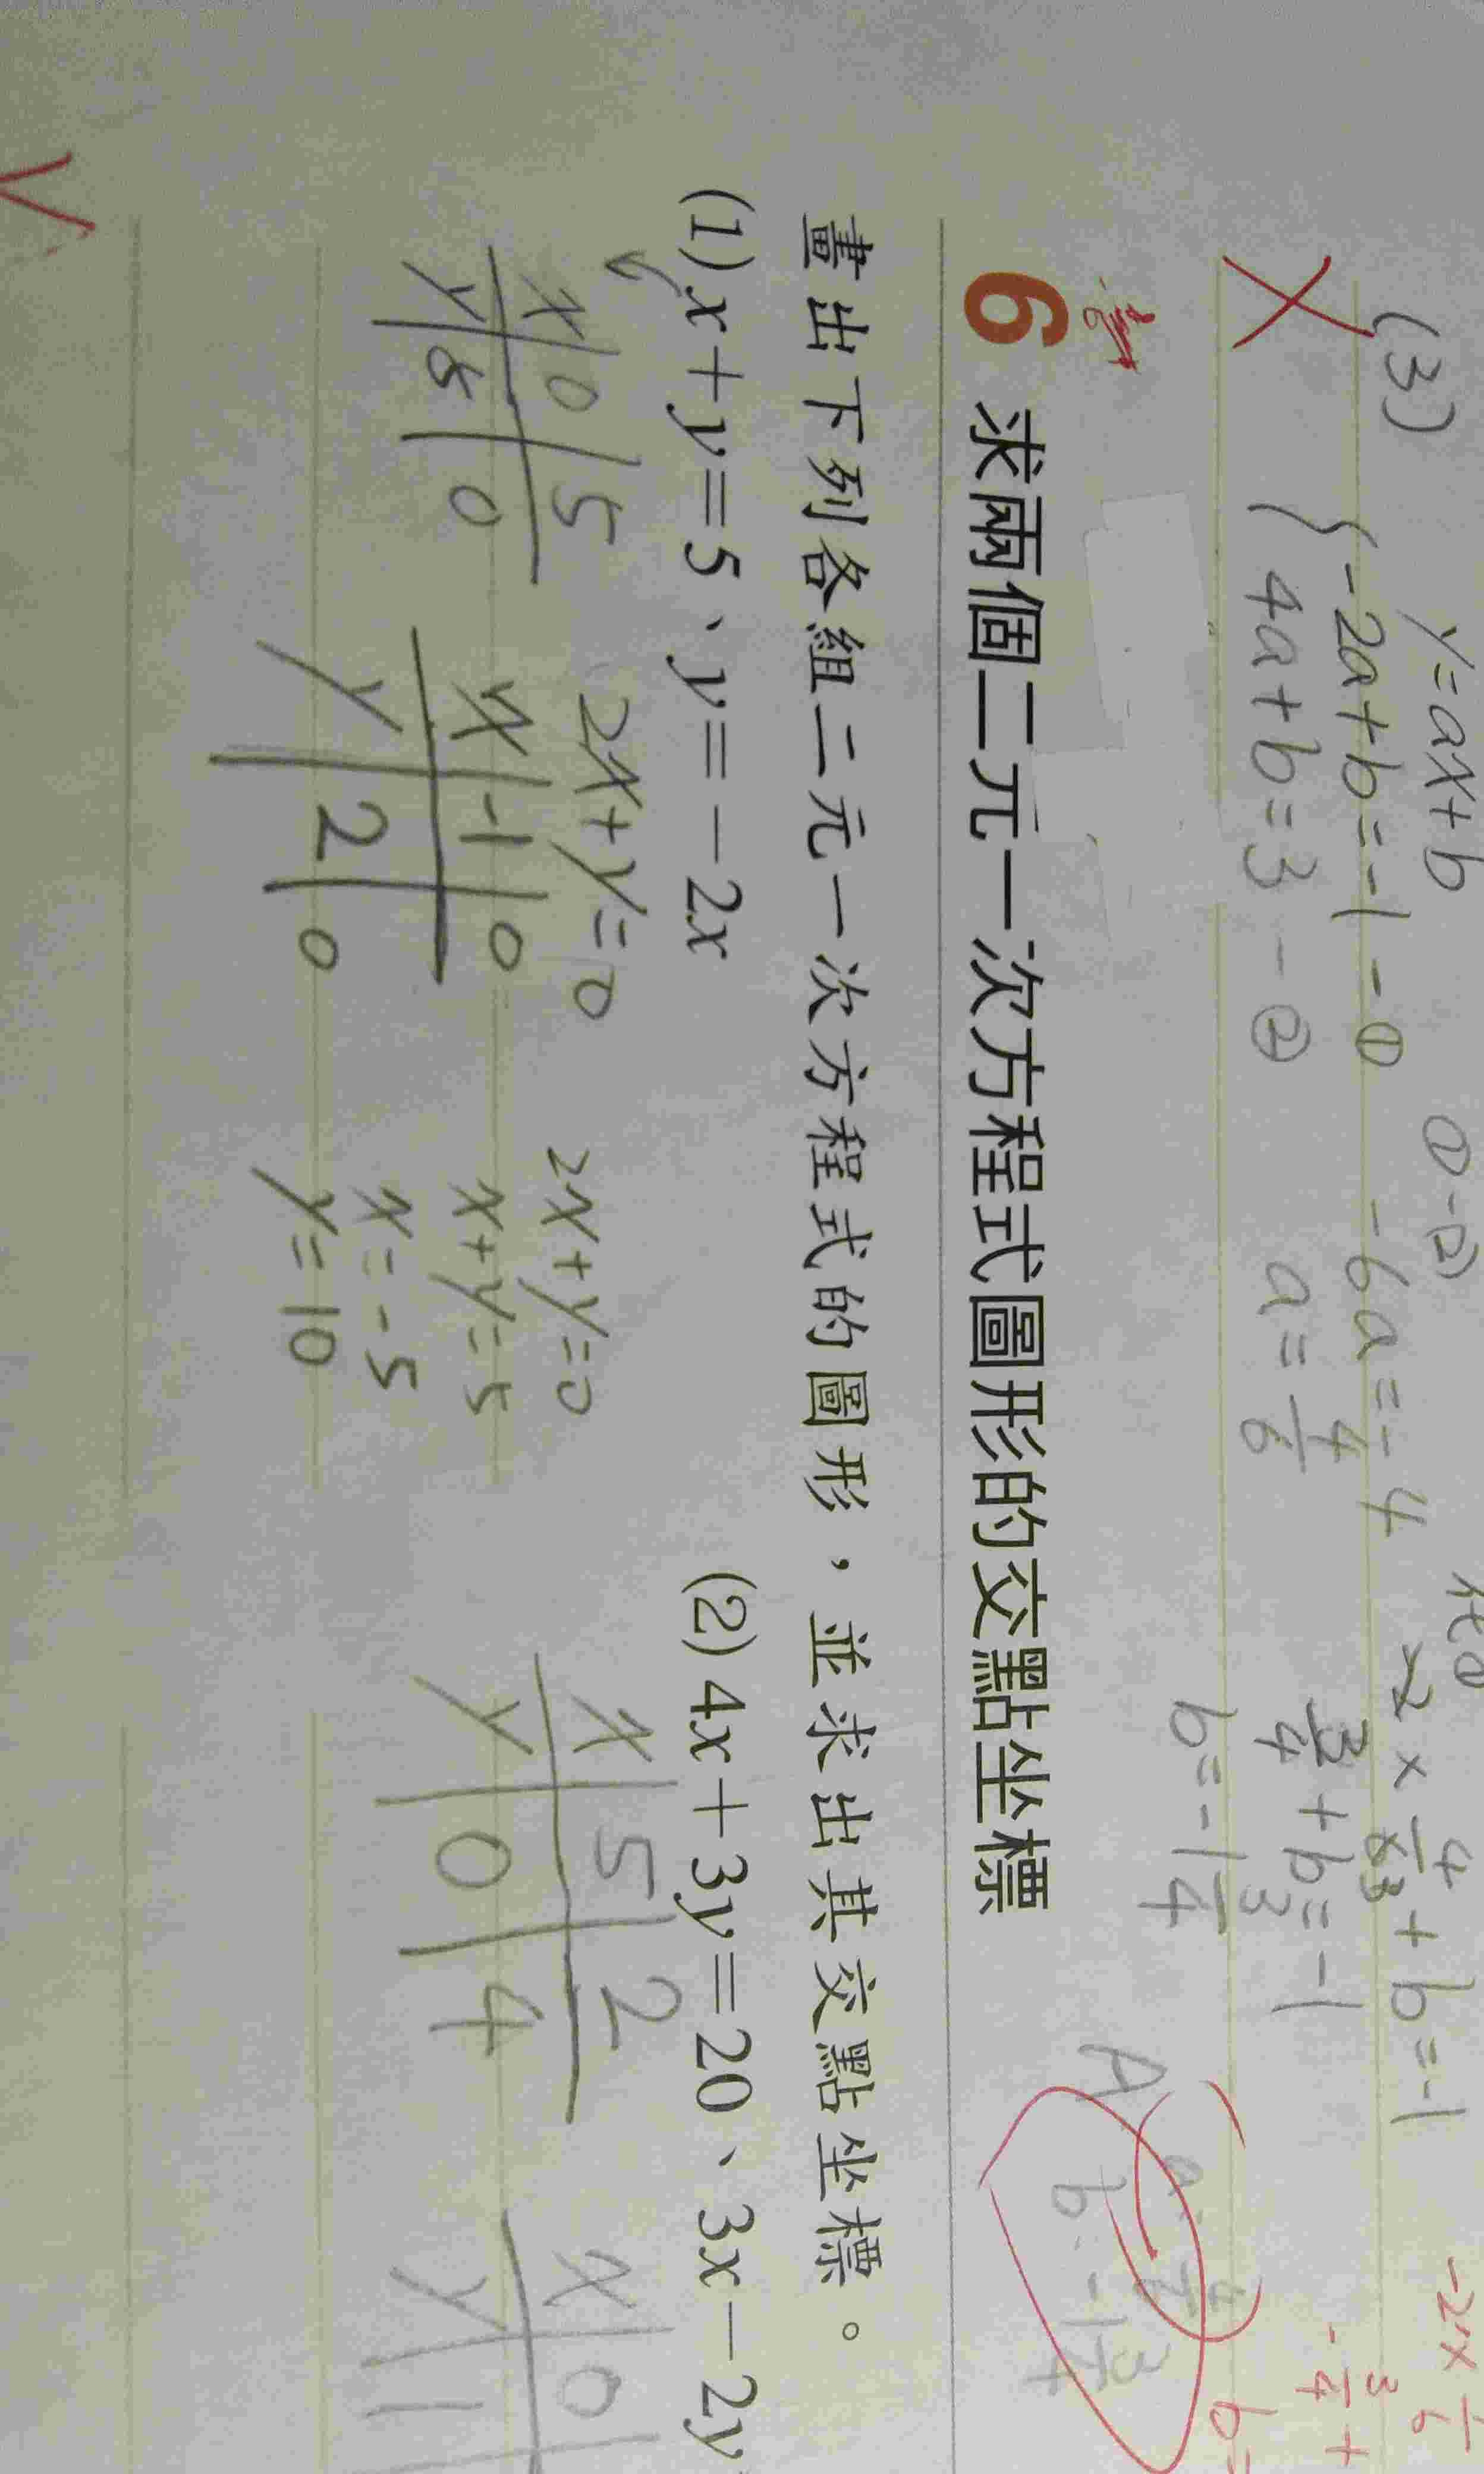 (3) y=ax+b ①-②
{-2a+b=-1 -① -6a=-4 -2×4/63+b=-1 -2×
4a+b=3 -② a=4/6 3/4+b=-1 -3/4+
b=-1 3/4 b=
A
b -1 3/4
6 求兩個二元一次方程式圖形的交點坐標
畫出下列各組二元一次方程式的圖形，並求出其交點坐標。
(1) x+y=5、y=-2x (2) 4x+3y=20、3x-2y
x 0 5 2x+y=0 2x+y=0 x 5 2 x 0
y 5 0 x -1 0 x+y=5 y 0 4 y 1
y 2 0 x=-5
y=10